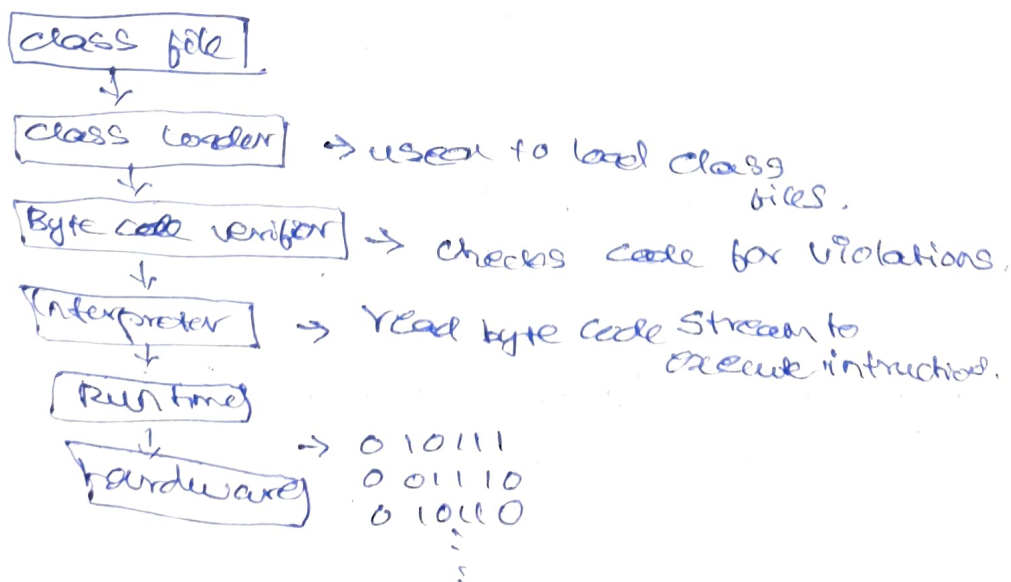 class file
class Loader → used to load class
files.
Byte code verifier → checks code for violations.
Interpreter → read byte code stream to
execute intructions.
Runtime
→ 010111
hardware 001110
010110